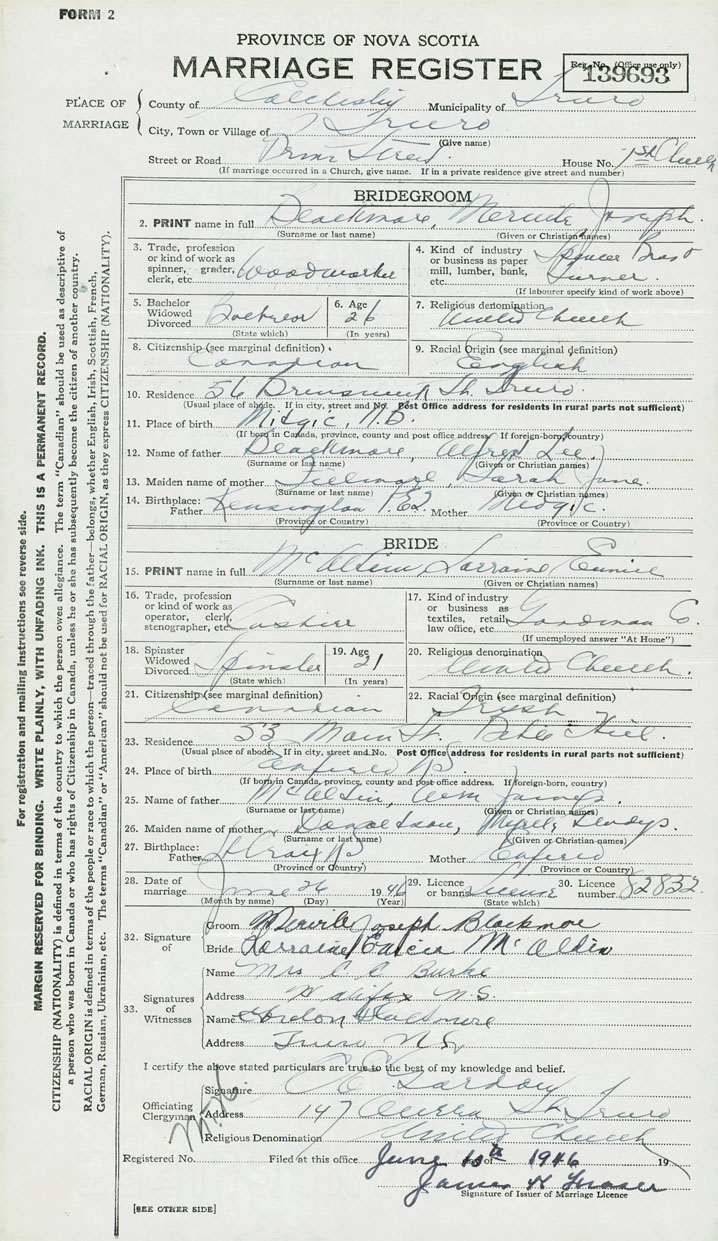 FORM 2
PROVINCE OF NOVA SCOTIA
MARRIAGE REGISTER
Reg. No. (Office use only)
139693
PLACE OF MARRIAGE
County of Colchester Municipality of Truro
City, Town or Village of Truro
(Give name)
Street or Road Street House No. 1st Church
(If marriage occurred in a Church, give name. If in a private residence give street and number)
BRIDEGROOM
2. PRINT name in full Blackmore, Joseph
(Surname or last name) (Given or Christian names)
3. Trade, profession or kind of work as spinner, grader, clerk, etc. Woodworker
4. Kind of industry or business as paper mill, lumber, bank, etc. Spencer Bros & Turner
(If labourer specify kind of work above)
5. Bachelor Widowed Divorced Bachelor
(State which)
6. Age 26
(In years)
7. Religious denomination United Church
8. Citizenship (see marginal definition) Canadian
9. Racial Origin (see marginal definition) English
10. Residence 56 Brunswick St. Truro
(Usual place of abode. If in city, street and No. Post Office address for residents in rural parts not sufficient)
11. Place of birth Midgic, N.B.
(If born in Canada, province, county and post office address. If foreign-born, country)
12. Name of father Blackmore, Alfred Lee
(Surname or last name) (Given or Christian names)
13. Maiden name of mother Sarah Jane
(Surname or last name) (Given or Christian names)
14. Birthplace: Father Kensington P.E.I. Mother Midgic
(Province or Country) (Province or Country)
BRIDE
15. PRINT name in full Lorraine Eunice
(Surname or last name) (Given or Christian names)
16. Trade, profession or kind of work as operator, clerk, stenographer, etc. Cashier
17. Kind of industry or business as textiles, retail, law office, etc. Goodman Co.
(If unemployed answer "At Home")
18. Spinster Widowed Divorced Spinster
(State which)
19. Age 21
(In years)
20. Religious denomination United Church
21. Citizenship (see marginal definition) Canadian
22. Racial Origin (see marginal definition) Irish
23. Residence 53 Main St. Bible Hill
(Usual place of abode. If in city, street and No. Post Office address for residents in rural parts not sufficient)
24. Place of birth
(If born in Canada, province, county and post office address. If foreign-born, country)
25. Name of father Wm James
(Surname or last name) (Given or Christian names)
26. Maiden name of mother Donaldson, Gladys
(Surname or last name) (Given or Christian names)
27. Birthplace: Father Mother
(Province or Country) (Province or Country)
28. Date of marriage June 26 1946
(Month by name) (Day) (Year)
29. Licence or banns License
(State which)
30. Licence number 82832
32. Signature of
Groom Joseph Blackmore
Bride Lorraine
33. Signatures of Witnesses
Name Mrs C C Burke
Address Halifax N.S.
Name Blackmore
Address Truro N.S.
I certify the above stated particulars are true to the best of my knowledge and belief.
Officiating Clergyman
Signature Gordon
Address 147 Queen St Truro
Religious Denomination United Church
Registered No. Filed at this office June day of 1946 19
James H Fraser
Signature of Issuer of Marriage Licence
[SEE OTHER SIDE]
For registration and mailing instructions see reverse side.
MARGIN RESERVED FOR BINDING. WRITE PLAINLY, WITH UNFADING INK. THIS IS A PERMANENT RECORD.
CITIZENSHIP (NATIONALITY) is defined in terms of the country to which the person owes allegiance. The term "Canadian" should be used as descriptive of
a person who was born in Canada or who has rights of Citizenship in Canada, unless he or she has subsequently become the citizen of another country.
RACIAL ORIGIN is defined in terms of the people or race to which the person—traced through the father—belongs, whether English, Irish, Scottish, French,
German, Russian, Ukrainian, etc. The terms "Canadian" or "American" should not be used for RACIAL ORIGIN, as they express CITIZENSHIP (NATIONALITY).